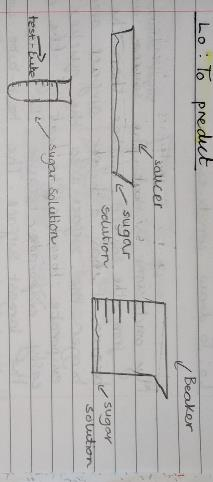 Lo: To predict
saucer
sugar
solution
Beaker
sugar
solution
test-tube
sugar solution